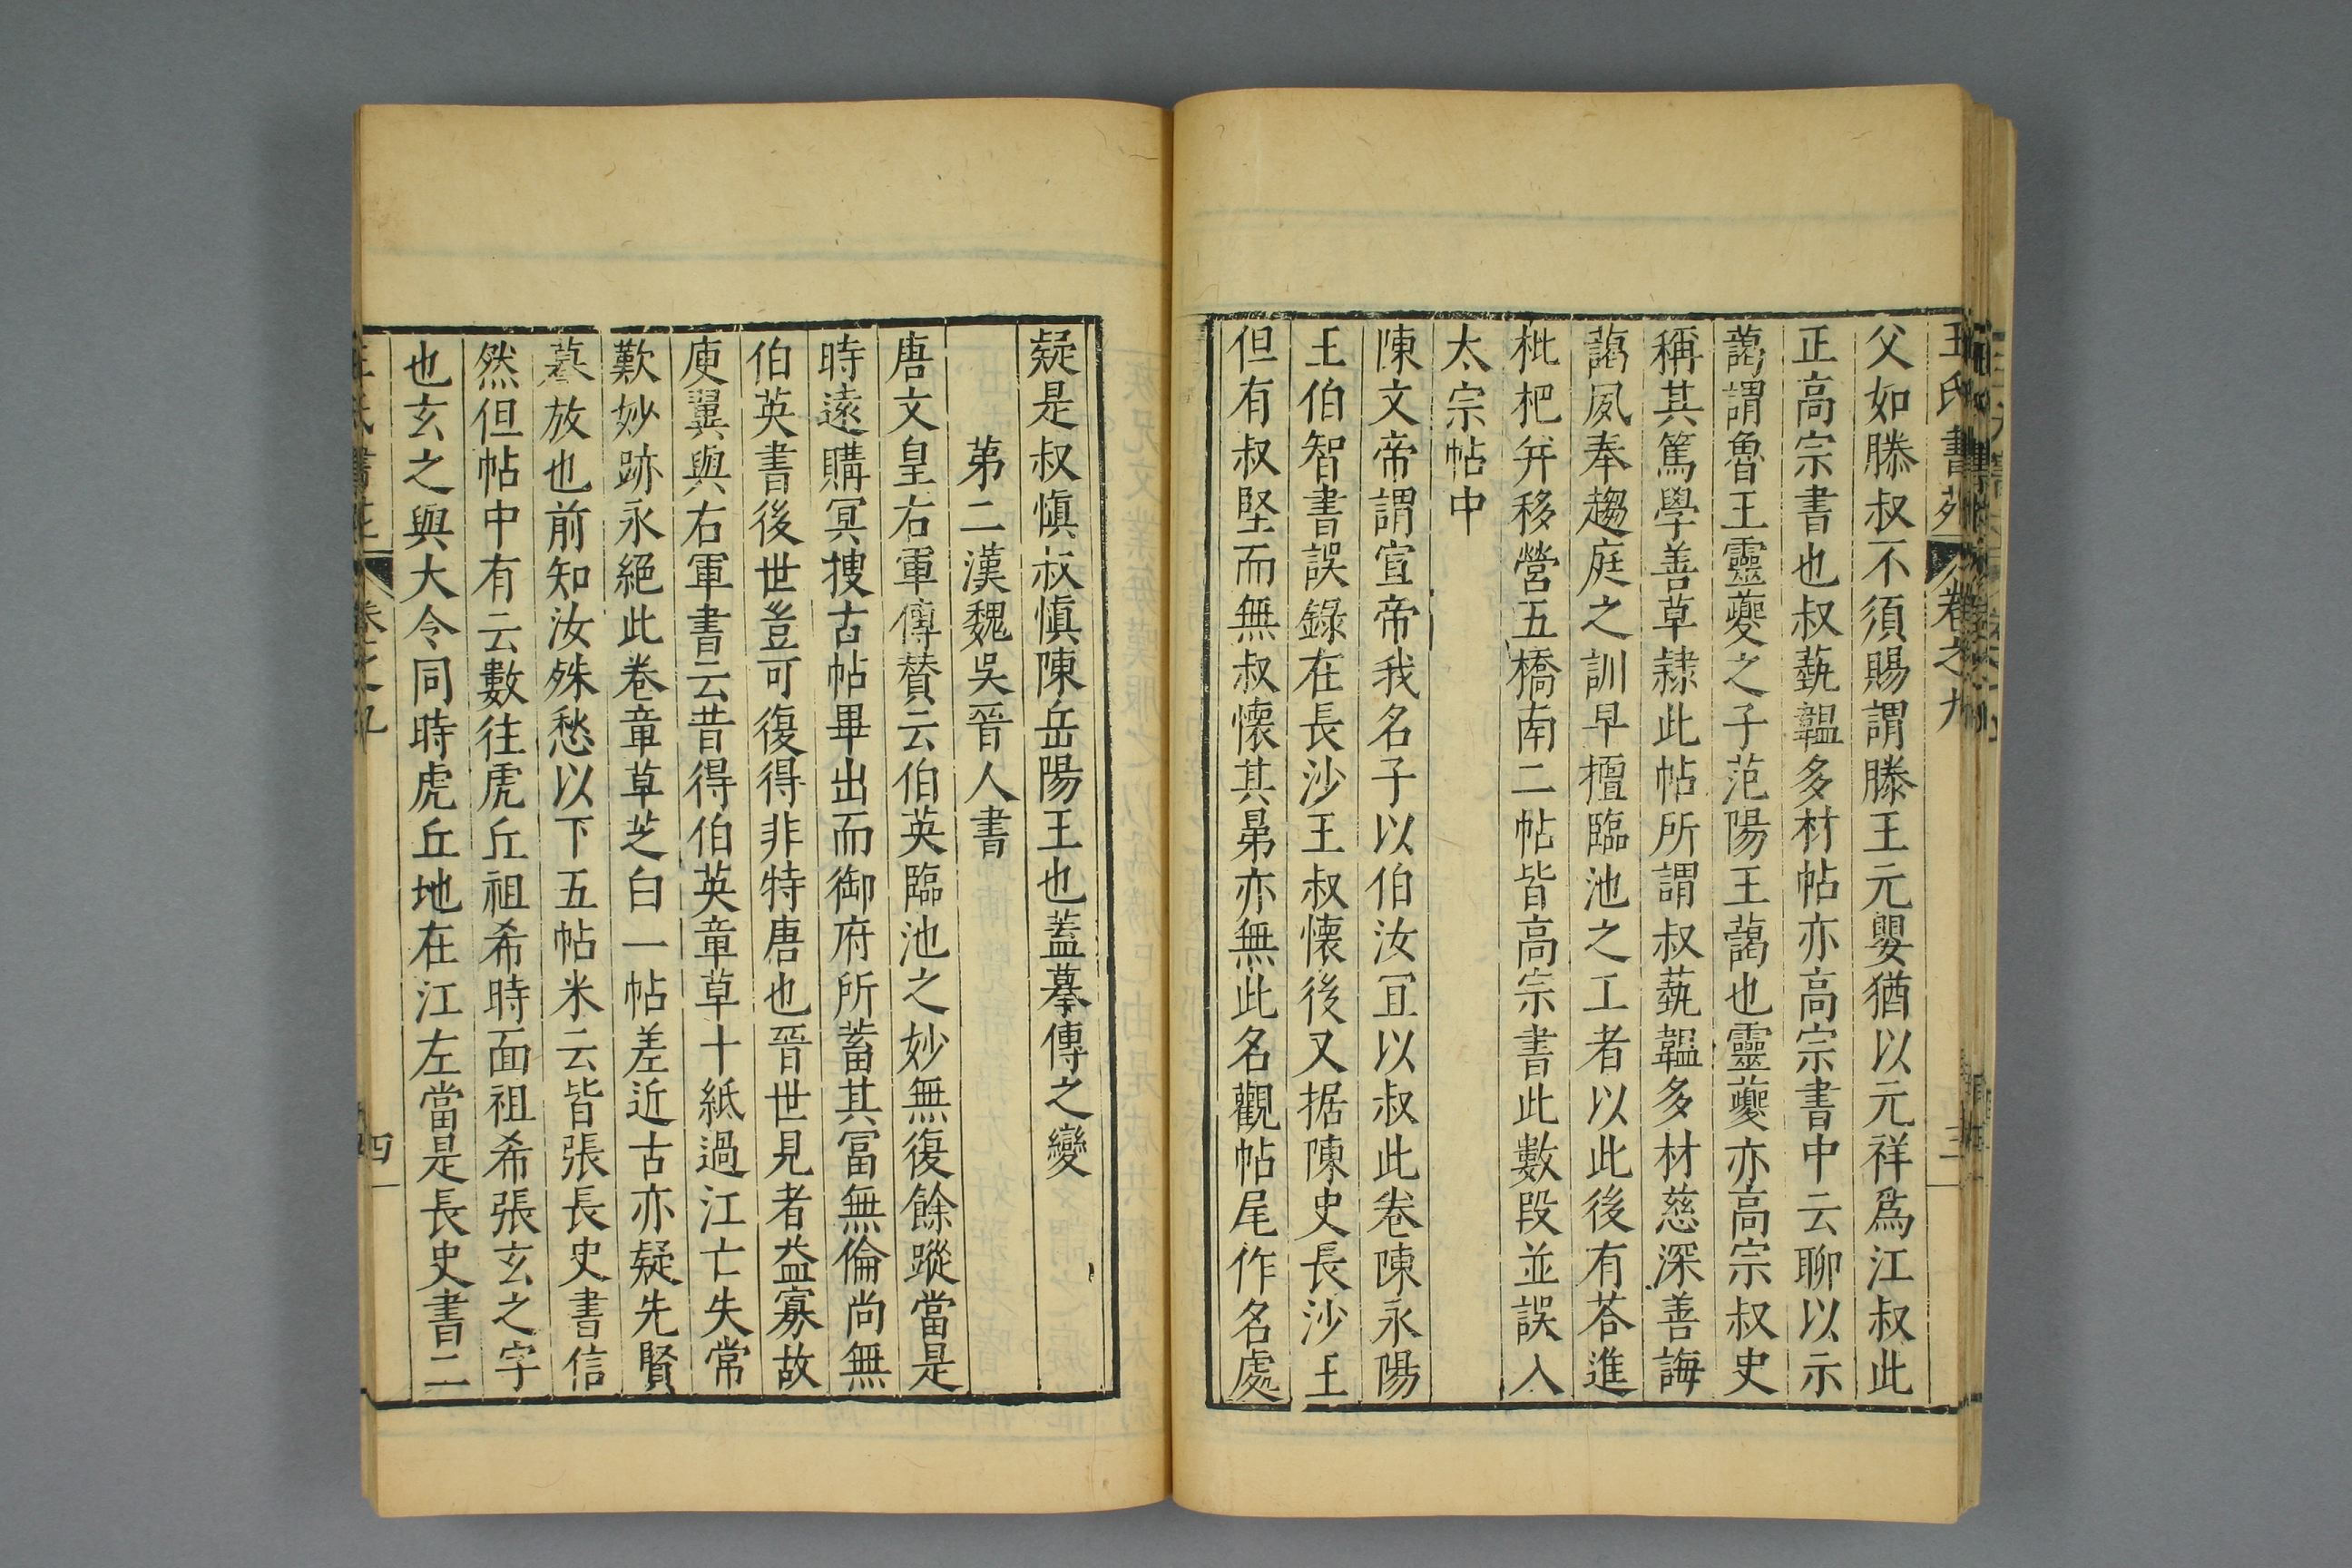 王氏書苑 卷之九 三
父如滕叔不須賜謂滕王元嬰猶以元祥爲江叔此
正高宗書也叔蓺韞多材帖亦高宗書中云聊以示
藹謂魯王靈夔之子范陽王藹也靈夔亦高宗叔史
稱其篤學善草隸此帖所謂叔蓺韞多材慈深善誨
藹夙奉趨庭之訓早擅臨池之工者以此後有荅進
枇杷并移營五橋南二帖皆高宗書此數段並誤入
太宗帖中
陳文帝謂宣帝我名子以伯汝冝以叔此卷陳永陽
王伯智書誤錄在長沙王叔懷後又据陳史長沙王
但有叔堅而無叔懷其弟亦無此名觀帖尾作名處
疑是叔愼叔愼陳岳陽王也蓋摹傳之變
第二漢魏吳晉人書
唐文皇右軍傳贊云伯英臨池之妙無復餘蹤當是
時遠購冥捜古帖畢出而御府所蓄其冨無倫尚無
伯英書後世豈可復得非特唐也晉世見者益寡故
庾翼與右軍書云昔得伯英章草十紙過江亡失常
歎妙跡永絕此卷章草芝白一帖差近古亦疑先賢
摹放也前知汝殊愁以下五帖米云皆張長史書信
然但帖中有云數往虎丘祖希時面祖希張玄之字
也玄之與大令同時虎丘地在江左當是長史書二
王氏書苑 卷之九 四